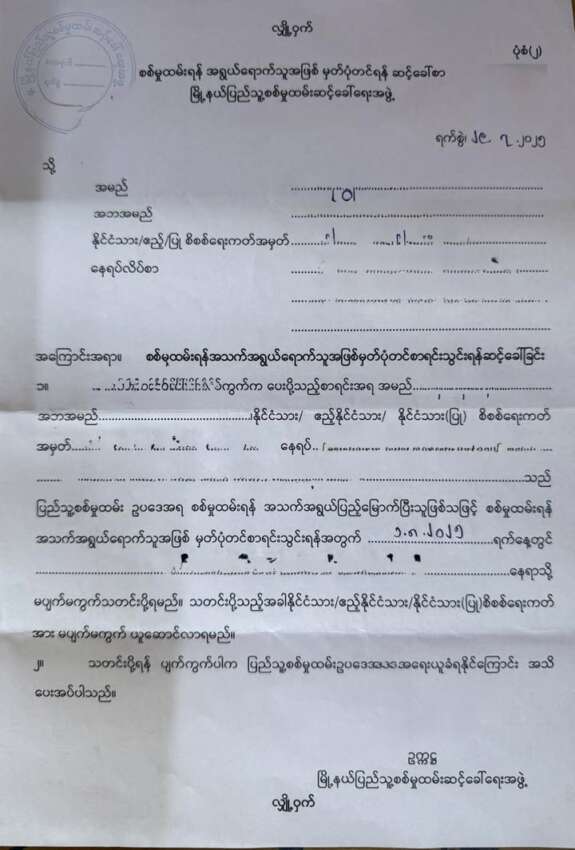 လျှို့ဝှက်
ပုံစံ(၂)
စစ်မှုထမ်းရန် အရွယ်ရောက်သူအဖြစ် မှတ်ပုံတင်ရန် ဆင့်ခေါ်စာ
မြို့နယ်ပြည်သူ့စစ်မှုထမ်းဆင့်ခေါ်ရေးအဖွဲ့
ရက်စွဲ၊ ၂၉. ၇. ၂၀၂၅
သို့
အမည်
အဘအမည်
နိုင်ငံသား/ဧည့်/ပြု စိစစ်ရေးကတ်အမှတ်
နေရပ်လိပ်စာ
အကြောင်းအရာ။ စစ်မှုထမ်းရန်အသက်အရွယ်ရောက်သူအဖြစ်မှတ်ပုံတင်စာရင်းသွင်းရန်ဆင့်ခေါ်ခြင်း
၁။ ကွက်က ပေးပို့သည့်စာရင်းအရ အမည်
အဘအမည် နိုင်ငံသား/ ဧည့်နိုင်ငံသား/ နိုင်ငံသား(ပြု) စိစစ်ရေးကတ်
အမှတ် နေရပ်
သည်
ပြည်သူ့စစ်မှုထမ်း ဥပဒေအရ စစ်မှုထမ်းရန် အသက်အရွယ်ပြည့်မြောက်ပြီးသူဖြစ်သဖြင့် စစ်မှုထမ်းရန်
အသက်အရွယ်ရောက်သူအဖြစ် မှတ်ပုံတင်စာရင်းသွင်းရန်အတွက် ၁.၈.၂၀၂၅ ရက်နေ့တွင်
နေရာသို့
မပျက်မကွက်သတင်းပို့ရမည်။ သတင်းပို့သည့်အခါနိုင်ငံသား/ဧည့်နိုင်ငံသား/နိုင်ငံသား(ပြု)စိစစ်ရေးကတ်
အား မပျက်မကွက် ယူဆောင်လာရမည်။
၂။ သတင်းပို့ရန် ပျက်ကွက်ပါက ပြည်သူ့စစ်မှုထမ်းဥပဒေအရအရေးယူခံရနိုင်ကြောင်း အသိ
ပေးအပ်ပါသည်။
ဥက္ကဋ္ဌ
မြို့နယ်ပြည်သူ့စစ်မှုထမ်းဆင့်ခေါ်ရေးအဖွဲ့
လျှို့ဝှက်